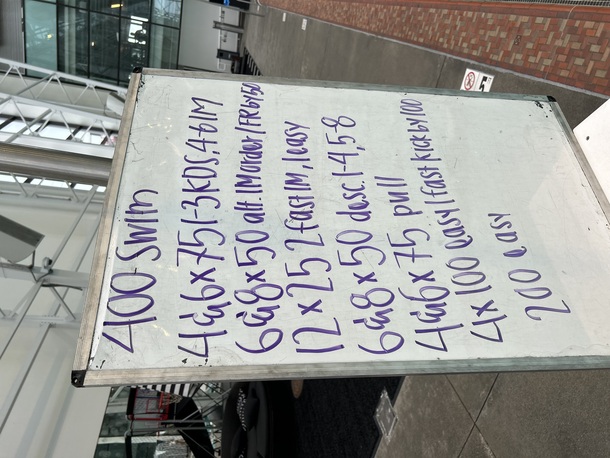 400 SWIM
4&6 x 75 1-3 KDS, 4-6 IM
6&8 x 50 alt. IM order/FR by 50
12 x 25 2 fast IM, 1 easy
6&8 x 50 desc. 1-4, 5-8
4&6 x 75 pull
4 x 100 easy/fast kick by 100
200 easy